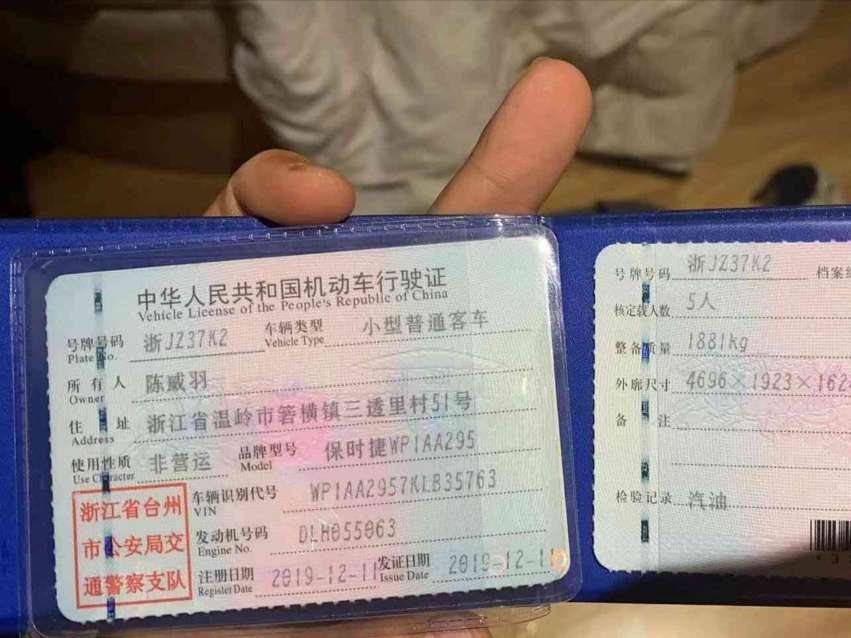 中华人民共和国机动车行驶证
Vehicle License of the People's Republic of China
号牌号码 浙JZ37K2 车辆类型 小型普通客车
Plate No. Vehicle Type
所有人 陈威羽
Owner
住址 浙江省温岭市箬横镇三透里村51号
Address
使用性质 非营运 品牌型号 保时捷WP1AA295
Use Character Model
浙江省台州
市公安局交
通警察支队
车辆识别代号 WP1AA2957KLB35763
VIN
发动机号码 DLH055063
Engine No.
注册日期 2019-12-11 发证日期 2019-12-11
Register Date Issue Date
号牌号码 浙JZ37K2 档案编
核定载人数 5人
整备质量 1881kg
外廓尺寸 4696×1923×1624
备注
检验记录 汽油